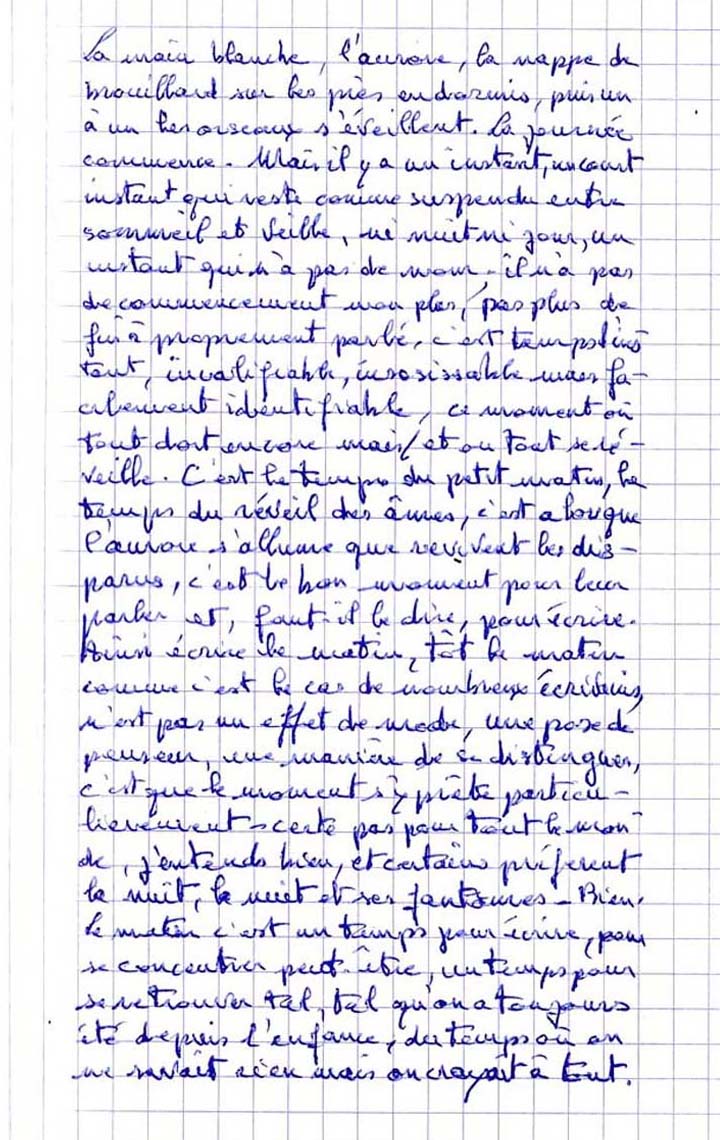 La main blanche, l'aurore, la nappe de
brouillard sur les prés endormis, puis un
à un les oiseaux s'éveillent. La journée
commence. Mais il y a un instant, un court
instant qui reste comme suspendu entre
sommeil et veille, ni nuit ni jour, un
instant qui n'a pas de nom - il n'a pas
de commencement non plus, pas plus de
fin à proprement parlé, c'est temps
tout, inqualifiable, insaisissable mais fa-
cilement identifiable, ce moment où
tout dort encore mais et où tout se ré-
veille. C'est le temps du petit matin, le
temps du réveil des âmes, c'est alors que
l'aurore s'allume que revivent les dis-
parus, c'est le bon moment pour leur
parler et, faut-il le dire, pour écrire.
Ainsi écrire le matin, tôt le matin
comme c'est le cas de nombreux écrivains,
n'est pas un effet de mode, une pose de
penseur, une manière de se distinguer,
c'est que le moment s'y prête particu-
lièrement - certe pas pour tout le mon-
de, j'entends bien, et certains préfèrent
la nuit, la nuit et ses fantômes - Bien.
Le matin c'est un temps pour écrire, pour
se concentrer peut-être, un temps pour
se retrouver tel, tel qu'on a toujours
été depuis l'enfance, du temps où on
ne savait rien mais on croyait à tout.